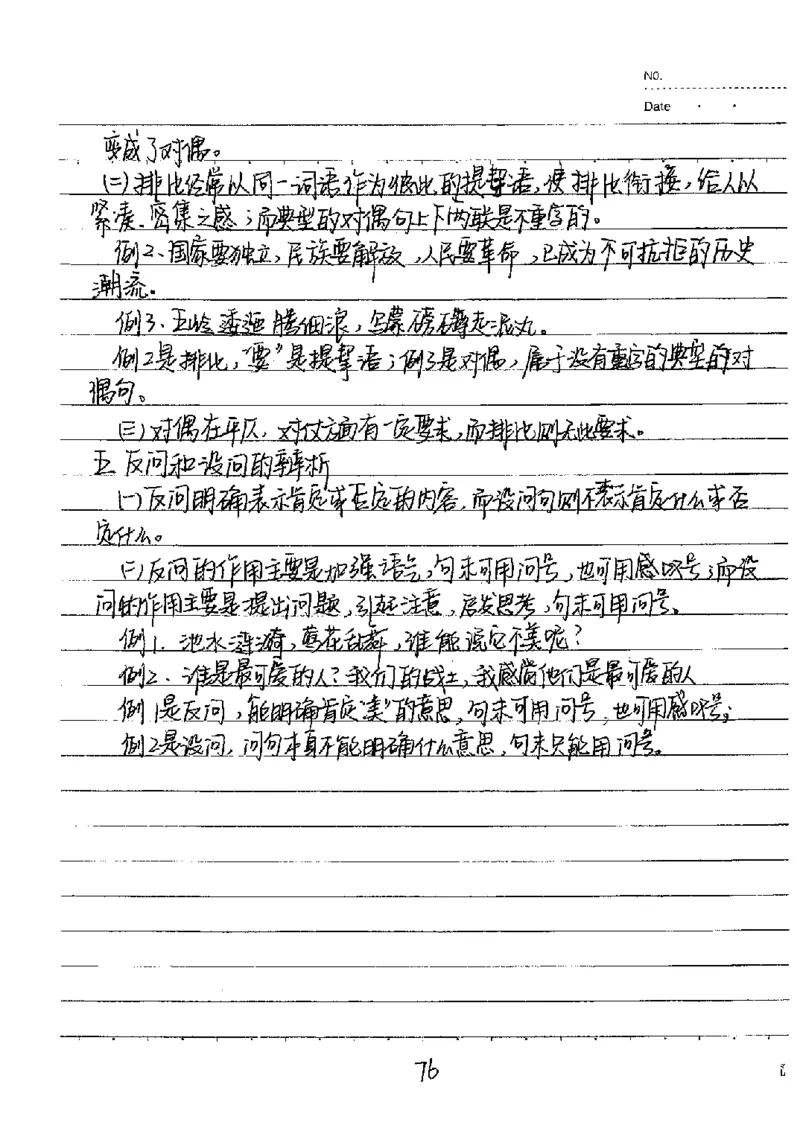 No.
Date
变成了对偶。
(二)排比经常以同一词语作为彼此的提挈语,使排比衔接,给人以
紧凑、密集之感;而典型的对偶句上下两联是不重字的。
例2、国家要独立,民族要解放,人民要革命,已成为不可抗拒的历史
潮流。
例3、五岭逶迤腾细浪,乌蒙磅礴走泥丸。
例2是排比,“要”是提挈语;例3是对偶,属于没有重字的典型的对
偶句。
(三)对偶在平仄、对仗方面有一定要求,而排比则无此要求。
五 反问和设问的辨析
(一)反问明确表示肯定或否定的内容,而设问句则不表示肯定什么或否
定什么。
(二)反问的作用主要是加强语气,句末可用问号,也可用感叹号;而设
问的作用主要是提出问题,引起注意,启发思考,句末可用问号。
例1. 池水涟漪,莺花乱舞,谁能说它不美呢?
例2、谁是最可爱的人?我们的战士,我感觉他们是最可爱的人
例1是反问,能明确肯定“美”的意思,句末可用问号,也可用感叹号;
例2是设问,问句本身不能明确什么意思,句末只能用问号。
76